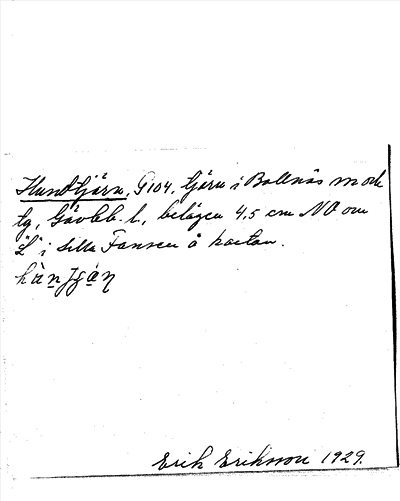 Hundtjärn, G104, tjärn i Bollnäs sn och
tg, Gävleb. l., belägen 4,5 cm NO om
"L" i Lilla Fansen å kartan.
Erik Eriksson 1929.